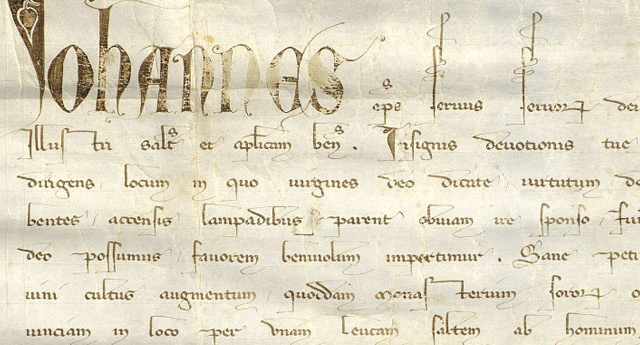 Johannes eps seruus seruorꝝ dei
Illustri salt͛ et aplicam ben͛. Insignis deuotionis tue
dirigens locum in quo uirgines deo dicate uirtutum
bentes accensis lampadibus parent obuiam ire sponso
deo possumus fauorem beniuolum impertimur. Sane peti
uini cultus augmentum quoddam monasterium sororꝝ
uinciam in loco per unam leucam saltem ab hominum